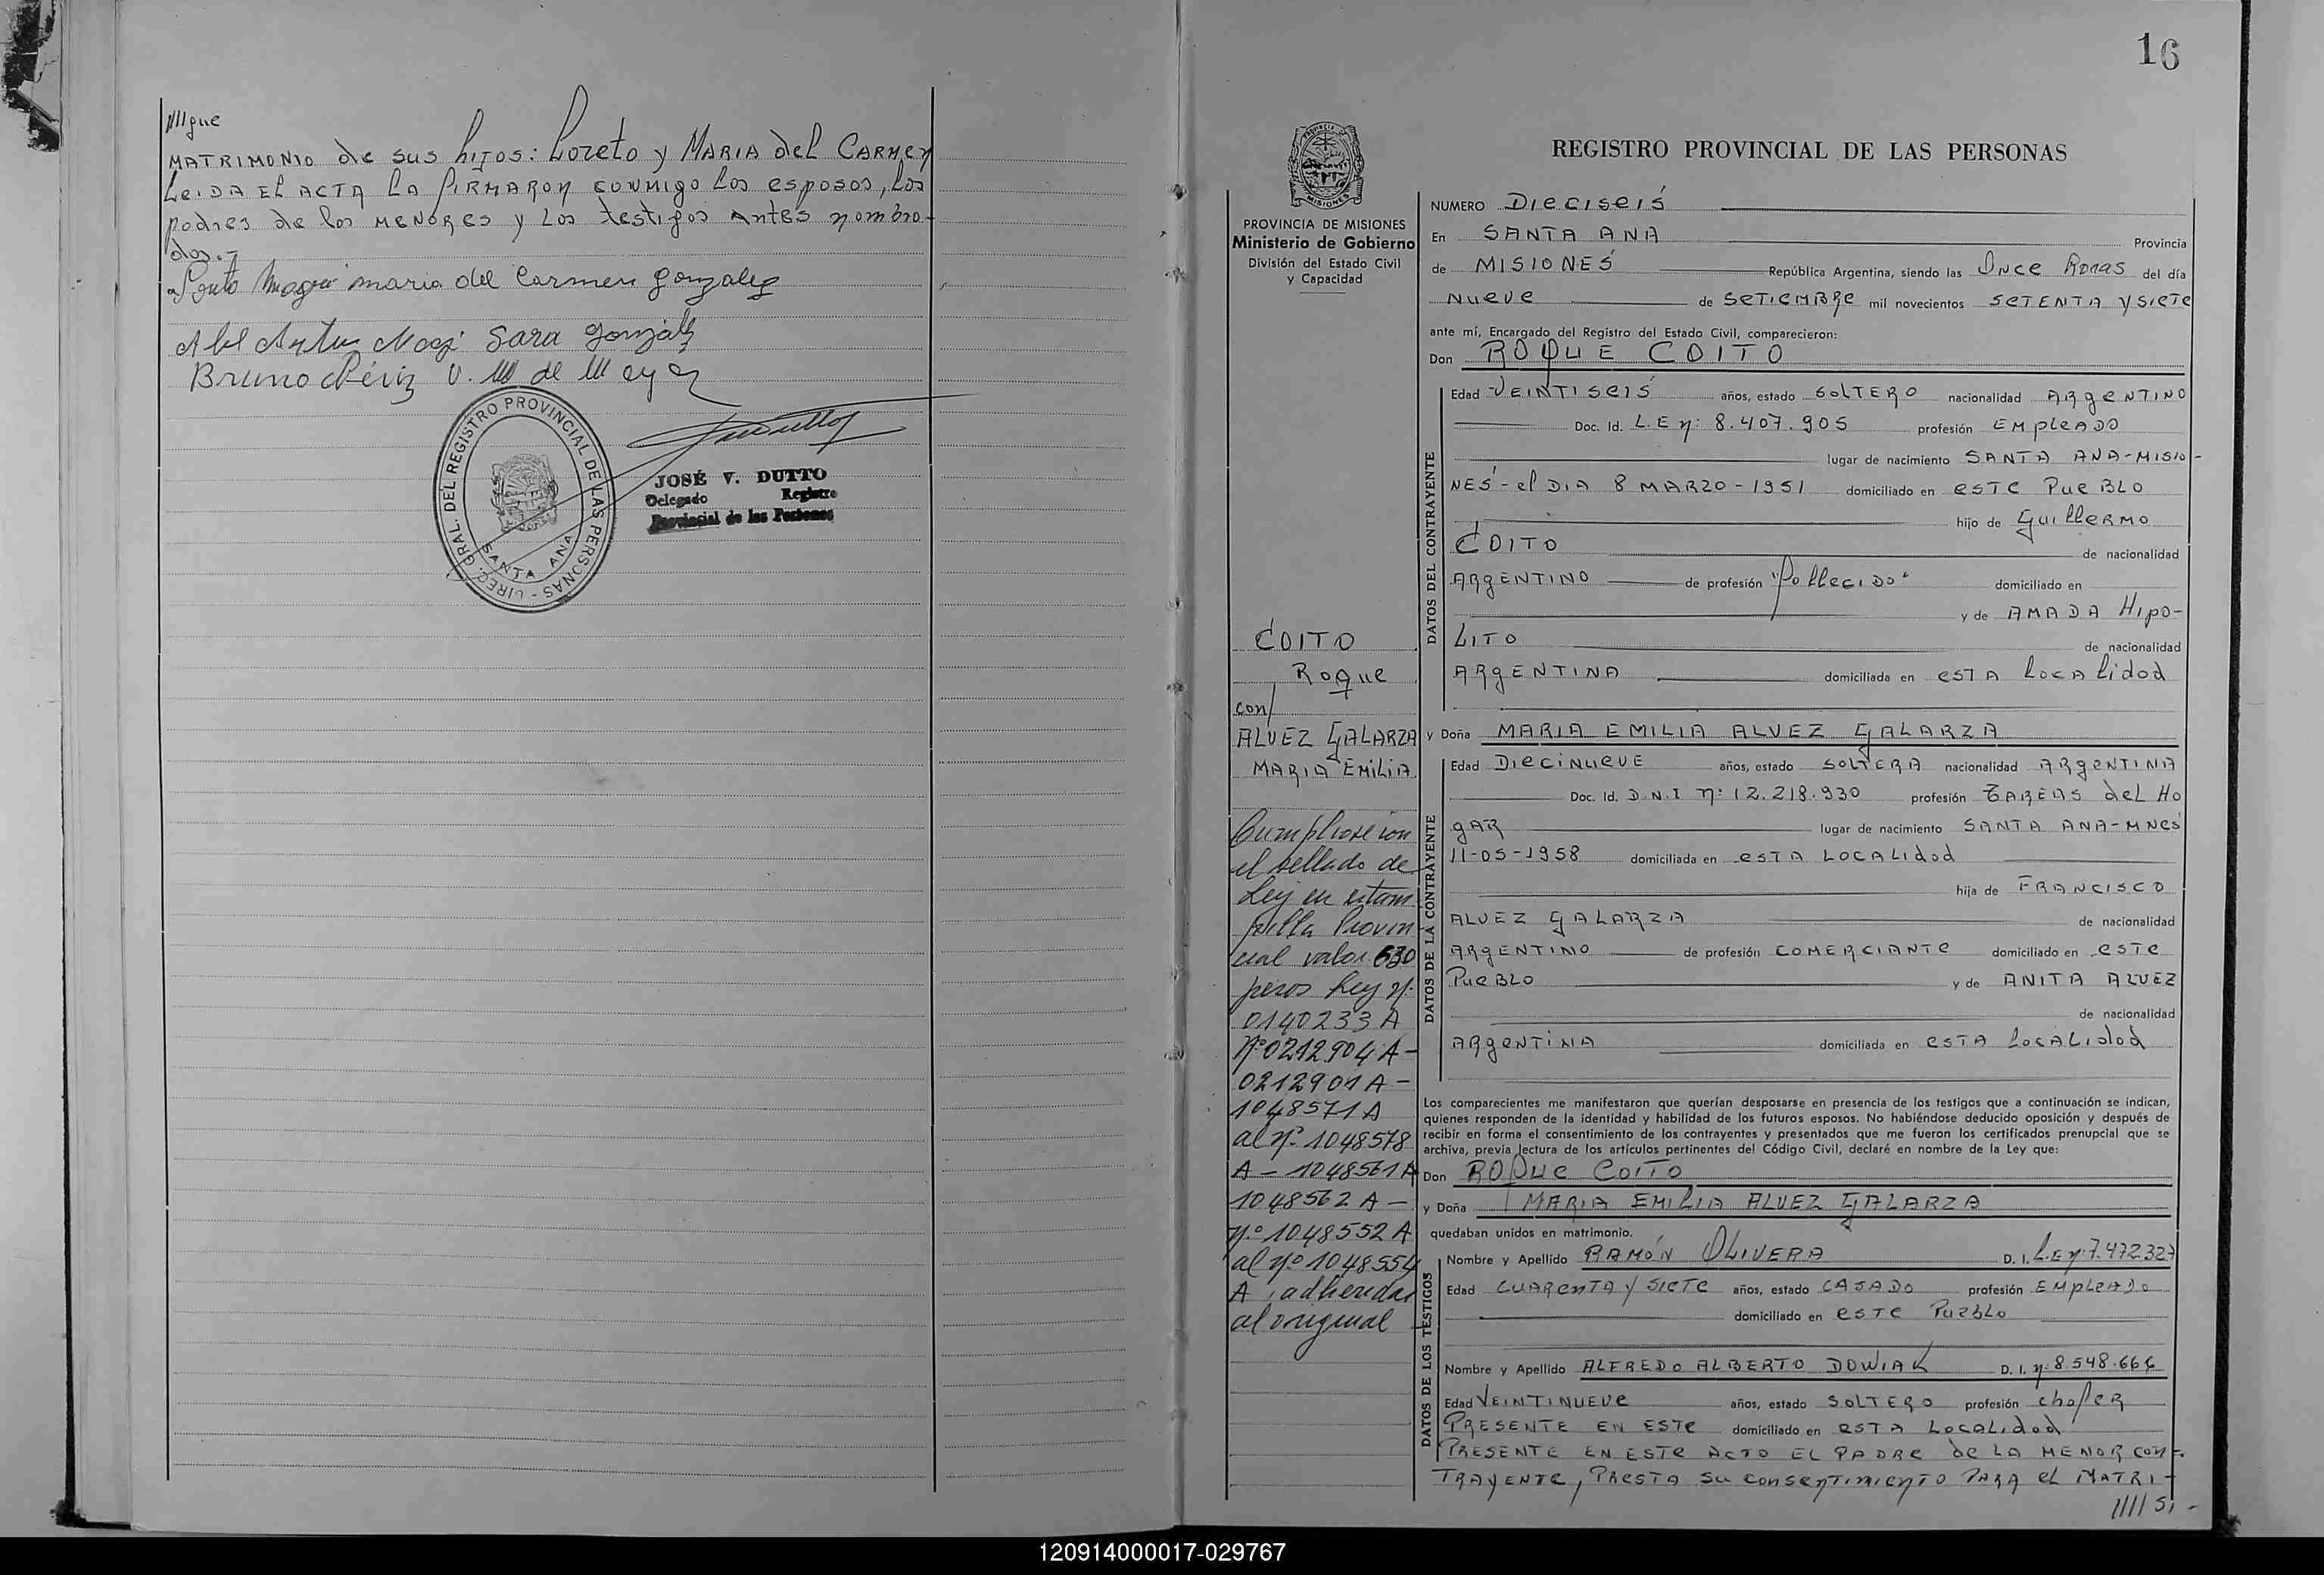 ////gue
MATRIMONIO de sus hijos: Loreto y MARIA del CARMEN
LeIDA El ACTA LA FIRMARON CONMIGO los esposos, los
padres de los MENORES y Los testigos Antes nombra-
dos.-
maria del Carmen Gonzalez
Sara Gonzalez
Bruno V. M de Meyer
DIREC. GRAL. DEL REGISTRO PROVINCIAL DE LAS PERSONAS -
SANTA ANA
JOSÉ V. DUTTO
Delegado Registro
Provincial de las Personas
16
PROVINCIA DE MISIONES
Ministerio de Gobierno
División del Estado Civil
y Capacidad
COITO
Roque
con/
ALVEZ GALARZA
MARIA EMILIA
Cumpliose con
el sellado de
Ley en estam
pilla Provin
cial valor 630
pesos Ley nº
0140233 A
Nº 0212904 A-
0212901 A-
1048571 A
al nº 1048578
A - 1048561 A
1048562 A -
nº 1048552 A
al nº 1048554
A adheridas
al original
REGISTRO PROVINCIAL DE LAS PERSONAS
NUMERO DieciseiS
En SANTA ANA Provincia
de MISIONES República Argentina, siendo las Once Horas del día
Nueve de SeTIeMBRe mil novecientos SeTENTA y SieTe
ante mí, Encargado del Registro del Estado Civil, comparecieron:
Don ROQUE COITO
DATOS DEL CONTRAYENTE
Edad VEINTISeiS años, estado SOLTERO nacionalidad ARgeNTINO
Doc. Id. L.E n: 8.407.905 profesión EMpleADO
lugar de nacimiento SANTA ANA-MISIO-
NES - el DIA 8 MARZO - 1951 domiciliado en esTe PueBLO
hijo de GuilleRMO
COITO de nacionalidad
ARgENTINO de profesión "FalleciDo" domiciliado en
y de AMADA Hipo-
LITO de nacionalidad
ARgENTINA domiciliada en esTA LocAlidad
y Doña MARIA EMILIA ALVEZ GALARZA
DATOS DE LA CONTRAYENTE
Edad DieciNueVE años, estado SOLTERA nacionalidad ARgeNTINA
Doc. Id. D.N.I n: 12.218.930 profesión TAREAS del Ho
gAR lugar de nacimiento SANTA ANA-MNes
11-05-1958 domiciliada en esTA LOCALidad
hija de FRANCISCO
ALVEZ GALARZA de nacionalidad
ARgENTINO de profesión COMERCIANTe domiciliado en esTe
PueBLO y de ANITA ALVEZ
de nacionalidad
ARgeNTINA domiciliada en esTA LocALidad
Los comparecientes me manifestaron que querían desposarse en presencia de los testigos que a continuación se indican,
quienes responden de la identidad y habilidad de los futuros esposos. No habiéndose deducido oposición y después de
recibir en forma el consentimiento de los contrayentes y presentados que me fueron los certificados prenupcial que se
archiva, previa lectura de los artículos pertinentes del Código Civil, declaré en nombre de la Ley que:
Don ROQUe COITO
y Doña MARIA EMILIA ALVEZ GALARZA
quedaban unidos en matrimonio.
DATOS DE LOS TESTIGOS
Nombre y Apellido RAMÓN OLIVERA D. I. L.E n: 7.472327
Edad CUAReNTA y SieTe años, estado CASADO profesión EMpleADo
domiciliado en esTe PueBLo
Nombre y Apellido ALFREDO ALBERTO DOWIAK D. I. n: 8.548.666
Edad VEINTINUEVe años, estado SOLTERO profesión chofeR
PRESENTE EN ESTe domiciliado en esTA LocALidad
PRESENTE EN ESTe ACTO EL PADRe de LA MENOR CON-
TRAyENTe, PResTA su consentimiento PARA el MATRI-
//// Si -
120914000017-029767